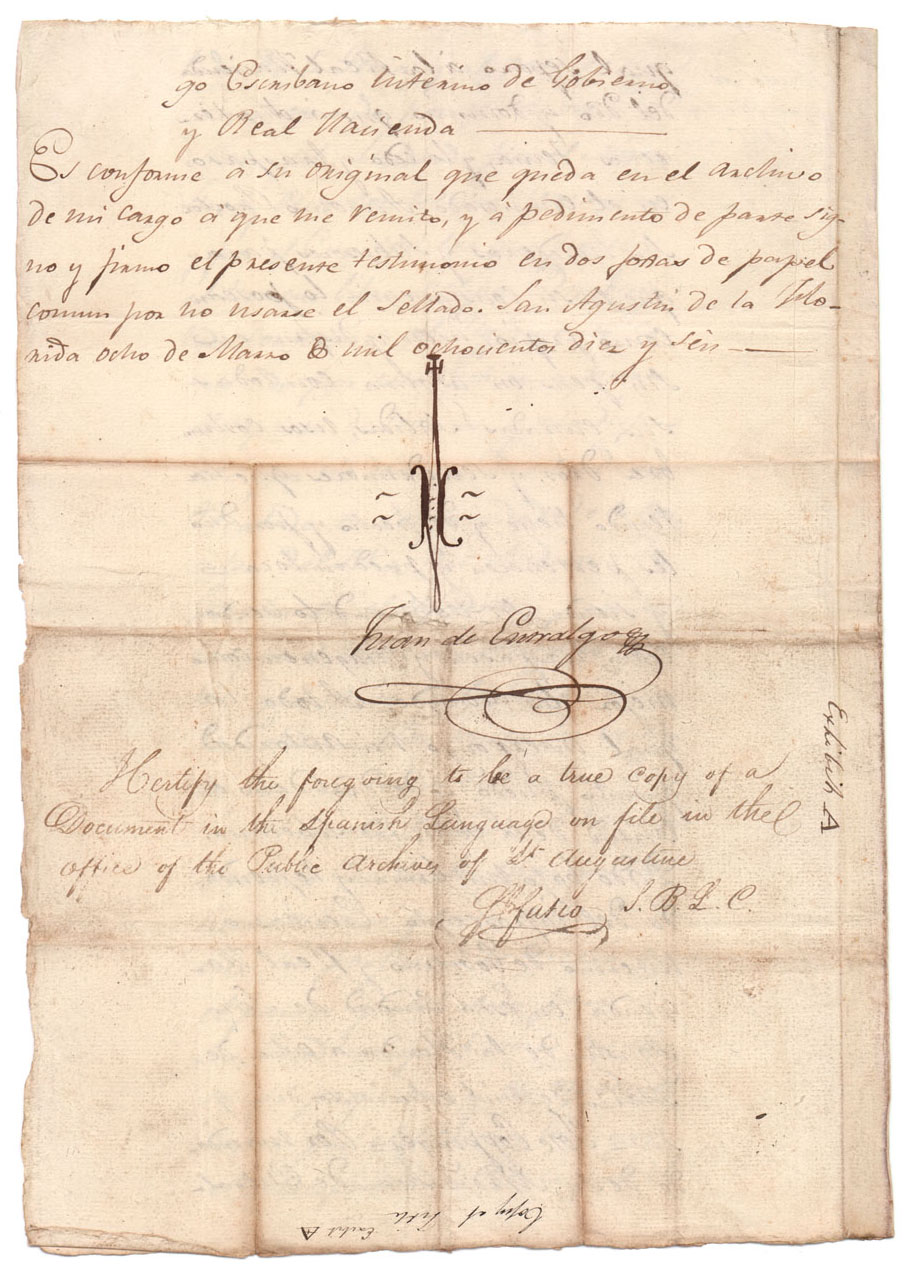 go Escribano interino de Gobierno
y Real Hacienda
Es conforme a su original que queda en el archivo
de mi cargo a que me remito, y á pedimento de parte sig-
no y firmo el presente testimonio en dos fojas de papel
comun por no usarse el sellado. San Agustin de la Flo-
rida ocho de Marzo de mil ochocientos diez y seis
Juan de Entralgo
I Certify the foregoing to be a true copy of a
Document in the Spanish Language on file in the
office of the Public Archives of St Augustine
S. B. L. C.
Exhibit A
Copy of Title
Exhibit A